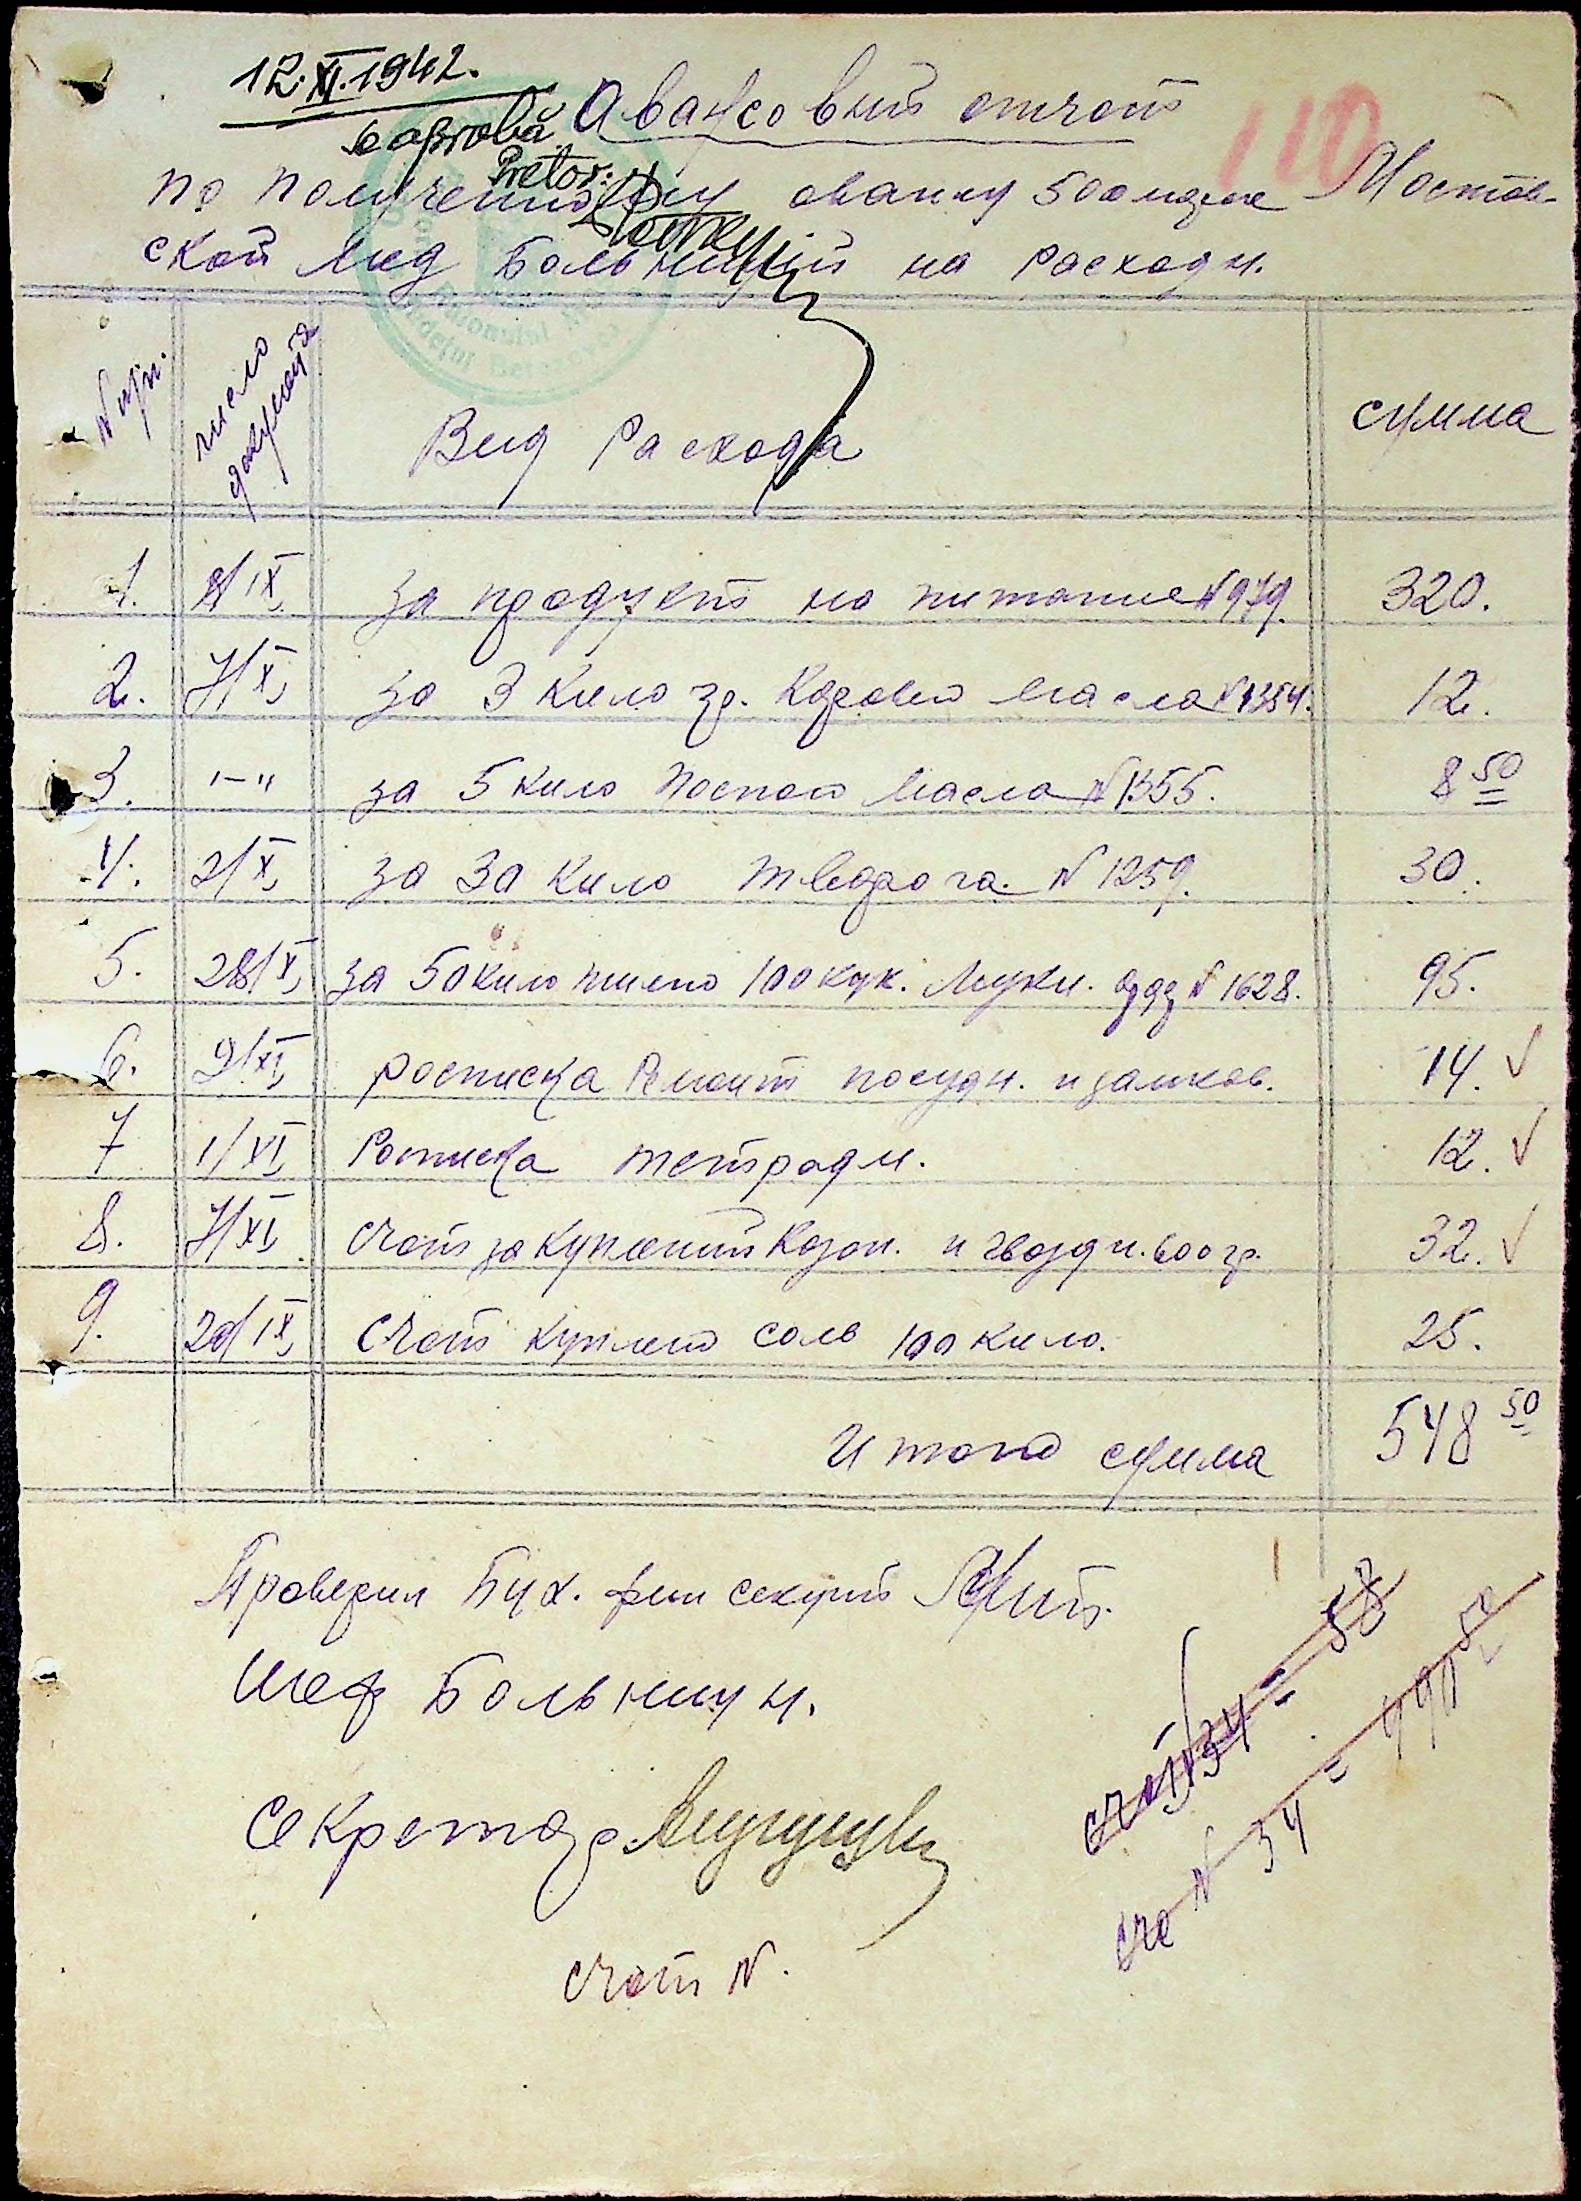 12.XI.1942.
Se aprobă
Pretor:
110
Авансовый отчот
по полученному авансу 500 марок Мостов-
ской Мед Больницы на расходы.
N п/п.
число документа
Вид Расхода
сумма
1. 8/IX за продукты на питание N 979. 320.
2. 7/X за 3 кило гр. Коровьо масла N 1354. 12.
3. "-" за 5 кило посного масла N 1355. 8 50
4. 2/X за 30 кило творога. N 1259. 30.
5. 28/X за 50 кило пшено 100 кук. муки. N 1628. 95.
6. 9/XI росписка Ремонт посуды. и замков. 14. ✓
7 1/XI Росписка тетради. 12. ✓
8. 7/XI счот за купленый Казан. и гвозди. 600 гр. 32. ✓
9. 20/IX счот куплено соль 100 кило. 25.
Итого сумма 548 50
Проверил Бух. фин секции
Шеф Больницы.
Секретар
счот N 34 = 58
сче N 34 = 490 50
счот N.